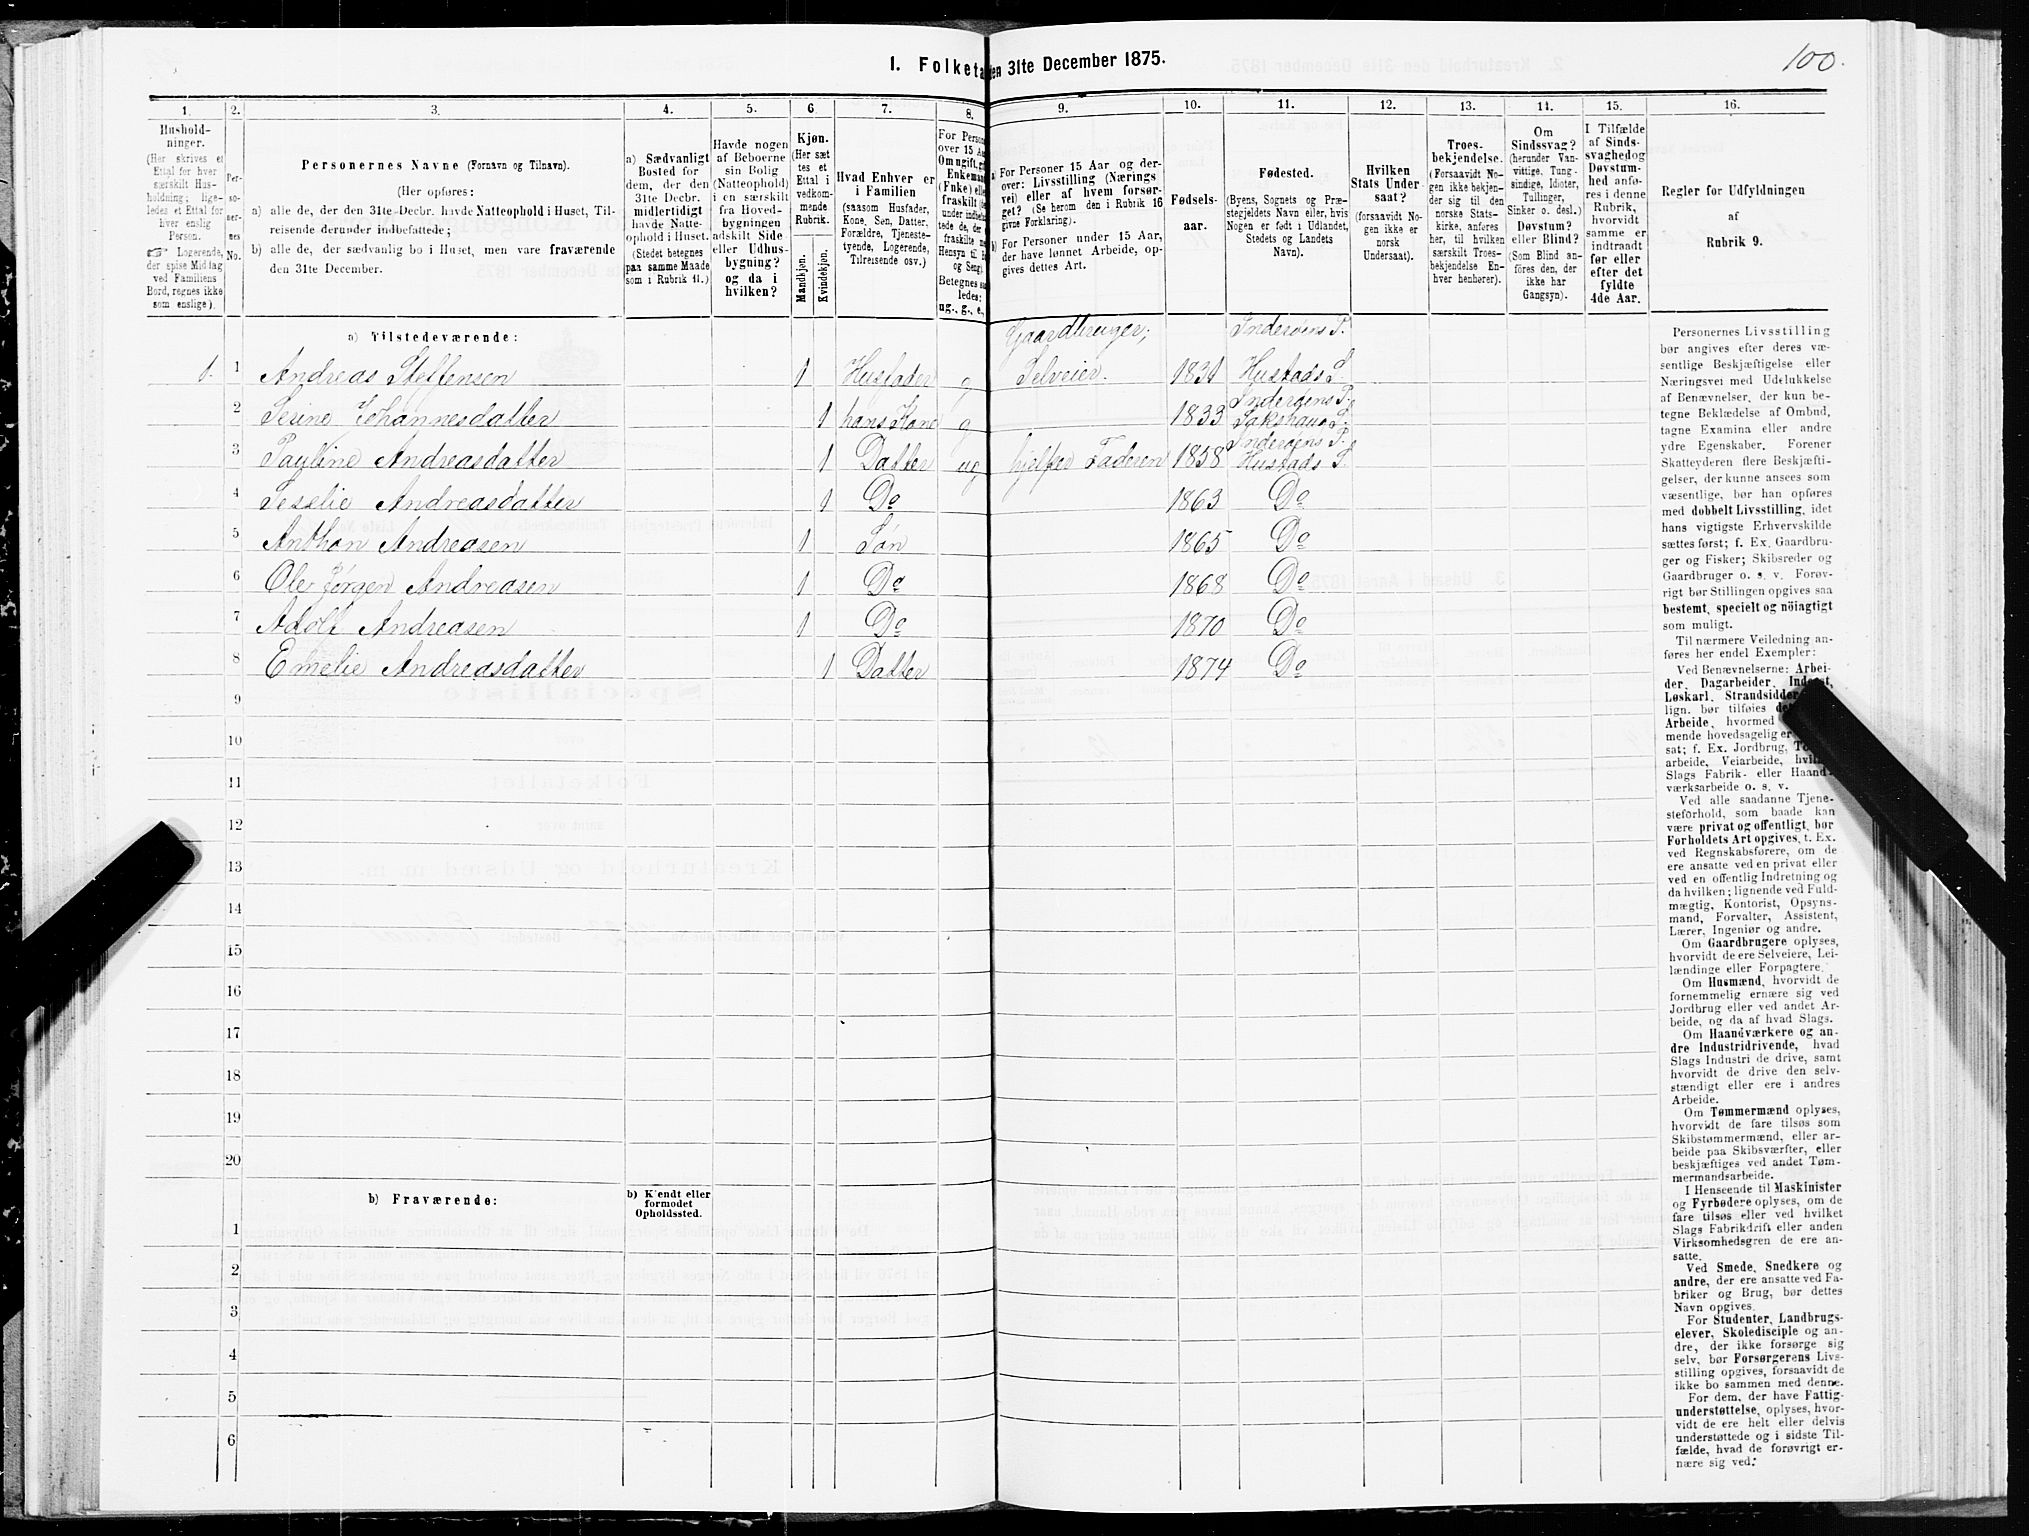 I. Folketa
den 31te December 1875.
100.
1.
2.
3.
4.
5.
6
7.
8.
9.
10.
11.
12.
13.
14.
15.
16.
Hushold-
ninger.
(Her skrives et
Ettal for hver
særskilt Hus-
holdning; lige-
ledes et Ettal for
hver enslig
Person.
☞ Logerende,
der spise Middag
ved Familiens
Bord, regnes ikke
som enslige).
Per-
so-
ner-
nes
No.
Personernes Navne (Fornavn og Tilnavn).
(Her opføres:
a) alle de, der den 31te Decbr. havde Natteophold i Huset, Til-
reisende derunder indbefattede;
b) alle de, der sædvanlig bo i Huset, men vare fraværende
den 31te December.
a) Sædvanligt
Bosted for
dem, der den
31te Decbr.
midlertidigt
havde Natte-
ophold i Huset.
(Stedet betegnes
paa samme Maade
som i Rubrik 11.)
Havde nogen
af Beboerne
sin Bolig
(Natteophold)
i en særskilt
fra Hoved-
bygningen
adskilt Side
eller Udhus-
bygning?
og da i
hvilken?
Kjøn.
(Her sæt
tes et
Ettal i
vedkom-
mende
Rubrik.
Mandkjøn.
Kvindekjøn.
Hvad Enhver er
i Familien
(saasom Husfader,
Kone, Søn, Datter,
Forældre, Tjeneste-
tyende, Logerende,
Tilreisende osv.)
For Person
over 15 Aa
Om ugift, g
Enkeman
(Enke) elle
fraskilt
Betegnes sa
ledes:
ug., g., e.,
a For Personer 15 Aar og der-
over: Livsstilling (Nærings
vei) eller af hvem forsør-
get? (Se herom den i Rubrik 16
givne Forklaring).
b For Personer under 15 Aar,
der have lønnet Arbeide, op-
gives dettes Art.
Fødsels-
aar.
Fødested.
(Byens, Sognets og Præ-
stegjeldets Navn eller, hvis
Nogen er født i Udlandet,
Stedets og Landets
Navn).
Hvilken
Stats Under-
saat?
(forsaavidt No-
gen ikke er
norsk
Undersaat).
Troes-
bekjendelse.
(Forsaavidt No-
gen ikke bekjen-
der sig til den
norske Stats-
kirke, anføres
her, til hvilken
særskilt Troes-
bekjendelse En-
hver henhører).
Om
Sindssvag?
(herunder Van-
vittige, Tung-
sindige, Idioter,
Tullinger,
Sinker o. desl.)
Døvstum?
eller Blind?
(Som Blind an-
føres den, der
ikke har
Gangsyn).
I Tilfælde
af Sinds-
svaghedog
Døvstum-
hed anfø-
res i denne
Rubrik,
hvorvidt
samme er
indtraadt
før eller
efter det
fyldte
4de Aar.
Regler for Udfyldningen
af
Rubrik 9.
a) Tilstedeværende:
Gaardbruger,
Inderøens P.
1. 1 Andreas Steffensen 1 Husfader g Selveier. 1831 Hustads S.
Inderøens P.
2 Serine Johannesdatter 1 hans Kone g 1833 Sakshaug S.
Inderøens P.
3 Pauline Andreasdatter 1 Datter ug hjelper Faderen 1858 Hustads S.
4 Seselie Andreasdatter 1 Do 1863 Do
5 Anthon Andreasen 1 Søn 1865 Do
6 Ole Jørgen Andreasen 1 Do 1868 Do
7 Adolf Andreasen 1 Do 1870 Do
8 Emelie Andreasdatter 1 Datter 1874 Do
9
10
11
12
13
14
15
16
17
18
19
20
b) Fraværende:
b) Kjendt eller
formodet
Opholdssted.
1
2
3
4
5
6
Personernes Livsstilling
bør angives efter deres væ-
sentlige Beskjæftigelse eller
Næringsvei med Udelukkelse
af Benævnelser, der kun be-
tegne Beklædelse af Ombud,
tagne Examina eller andre
ydre Egenskaber. Forener
Skatteyderen flere Beskjæfti-
gelser, der kunne ansees som
væsentlige, bør han opføres
med dobbelt Livsstilling, idet
hans vigtigste Erhvervskilde
sættes først; f. Ex. Gaardbru-
ger og Fisker; Skibsreder og
Gaardbruger o. s. v. Forøv-
rigt bør Stillingen opgives saa
bestemt, specielt og nöiagtigt
som muligt.
Til nærmere Veiledning an-
føres her endel Exempler:
Ved Benævnelserne: Arbei-
der, Dagarbeider, Inderst,
Løskarl, Strandsidder
lign. bør tilføies det
Arbeide, hvormed
mende hovedsagelig er
sat; f. Ex. Jordbrug,
arbeide, Veiarbeide, hvil
Slags Fabrik- eller Haand-
værksarbeide o. s. v.
Ved alle saadanne Tjene-
steforhold, som baade kan
være privat og offentligt, bør
Forholdets Art opgives, t. Ex.
ved Regnskabsførere, om de
ere ansatte ved en privat eller
ved en offentlig Indretning og
da hvilken; lignende ved Fuld-
mægtig, Kontorist, Opsyns-
mand, Forvalter, Assistent,
Lærer, Ingeniør og andre.
Om Gaardbrugere oplyses,
hvorvidt de ere Selveiere, Lei-
lændinge eller Forpagtere.
Om Husmænd, hvorvidt de
fornemmelig ernære sig ved
Jordbrug eller ved andet Ar-
beide, og da af hvad Slags.
Om Haandværkere og an-
dre Industridrivende, hvad
Slags Industri de drive, samt
hvorvidt de drive den selv-
stændigt eller ere i andres
Arbeide.
Om Tømmermænd oplyses,
hvorvidt de fare tilsøs som
Skibstømmermænd, eller ar-
beide paa Skibsværfter, eller
beskjæftiges ved andet Tøm-
mermandsarbeide.
I Henseende til Maskinister
og Fyrbødere oplyses, om de
fare tilsøs eller ved hvilket
Slags Fabrikdrift eller anden
Virksomhedsgren de ere an-
satte.
Ved Smede, Snedkere og
andre, der ere ansatte ved Fa-
briker og Brug, bør dettes
Navn opgives.
For Studenter, Landbrugs-
elever, Skoledisciple og an-
dre, der ikke forsørge sig
selv, bør Forsørgerens Livs-
stilling opgives, forsaavidt de
ikke bo sammen med denne.
For dem, der have Fattig-
understøttelse, oplyses, hvor-
vidt de ere helt eller delvis
understøttede og i sidste Til-
fælde, hvad de forøvrigt er-
nære sig ved.